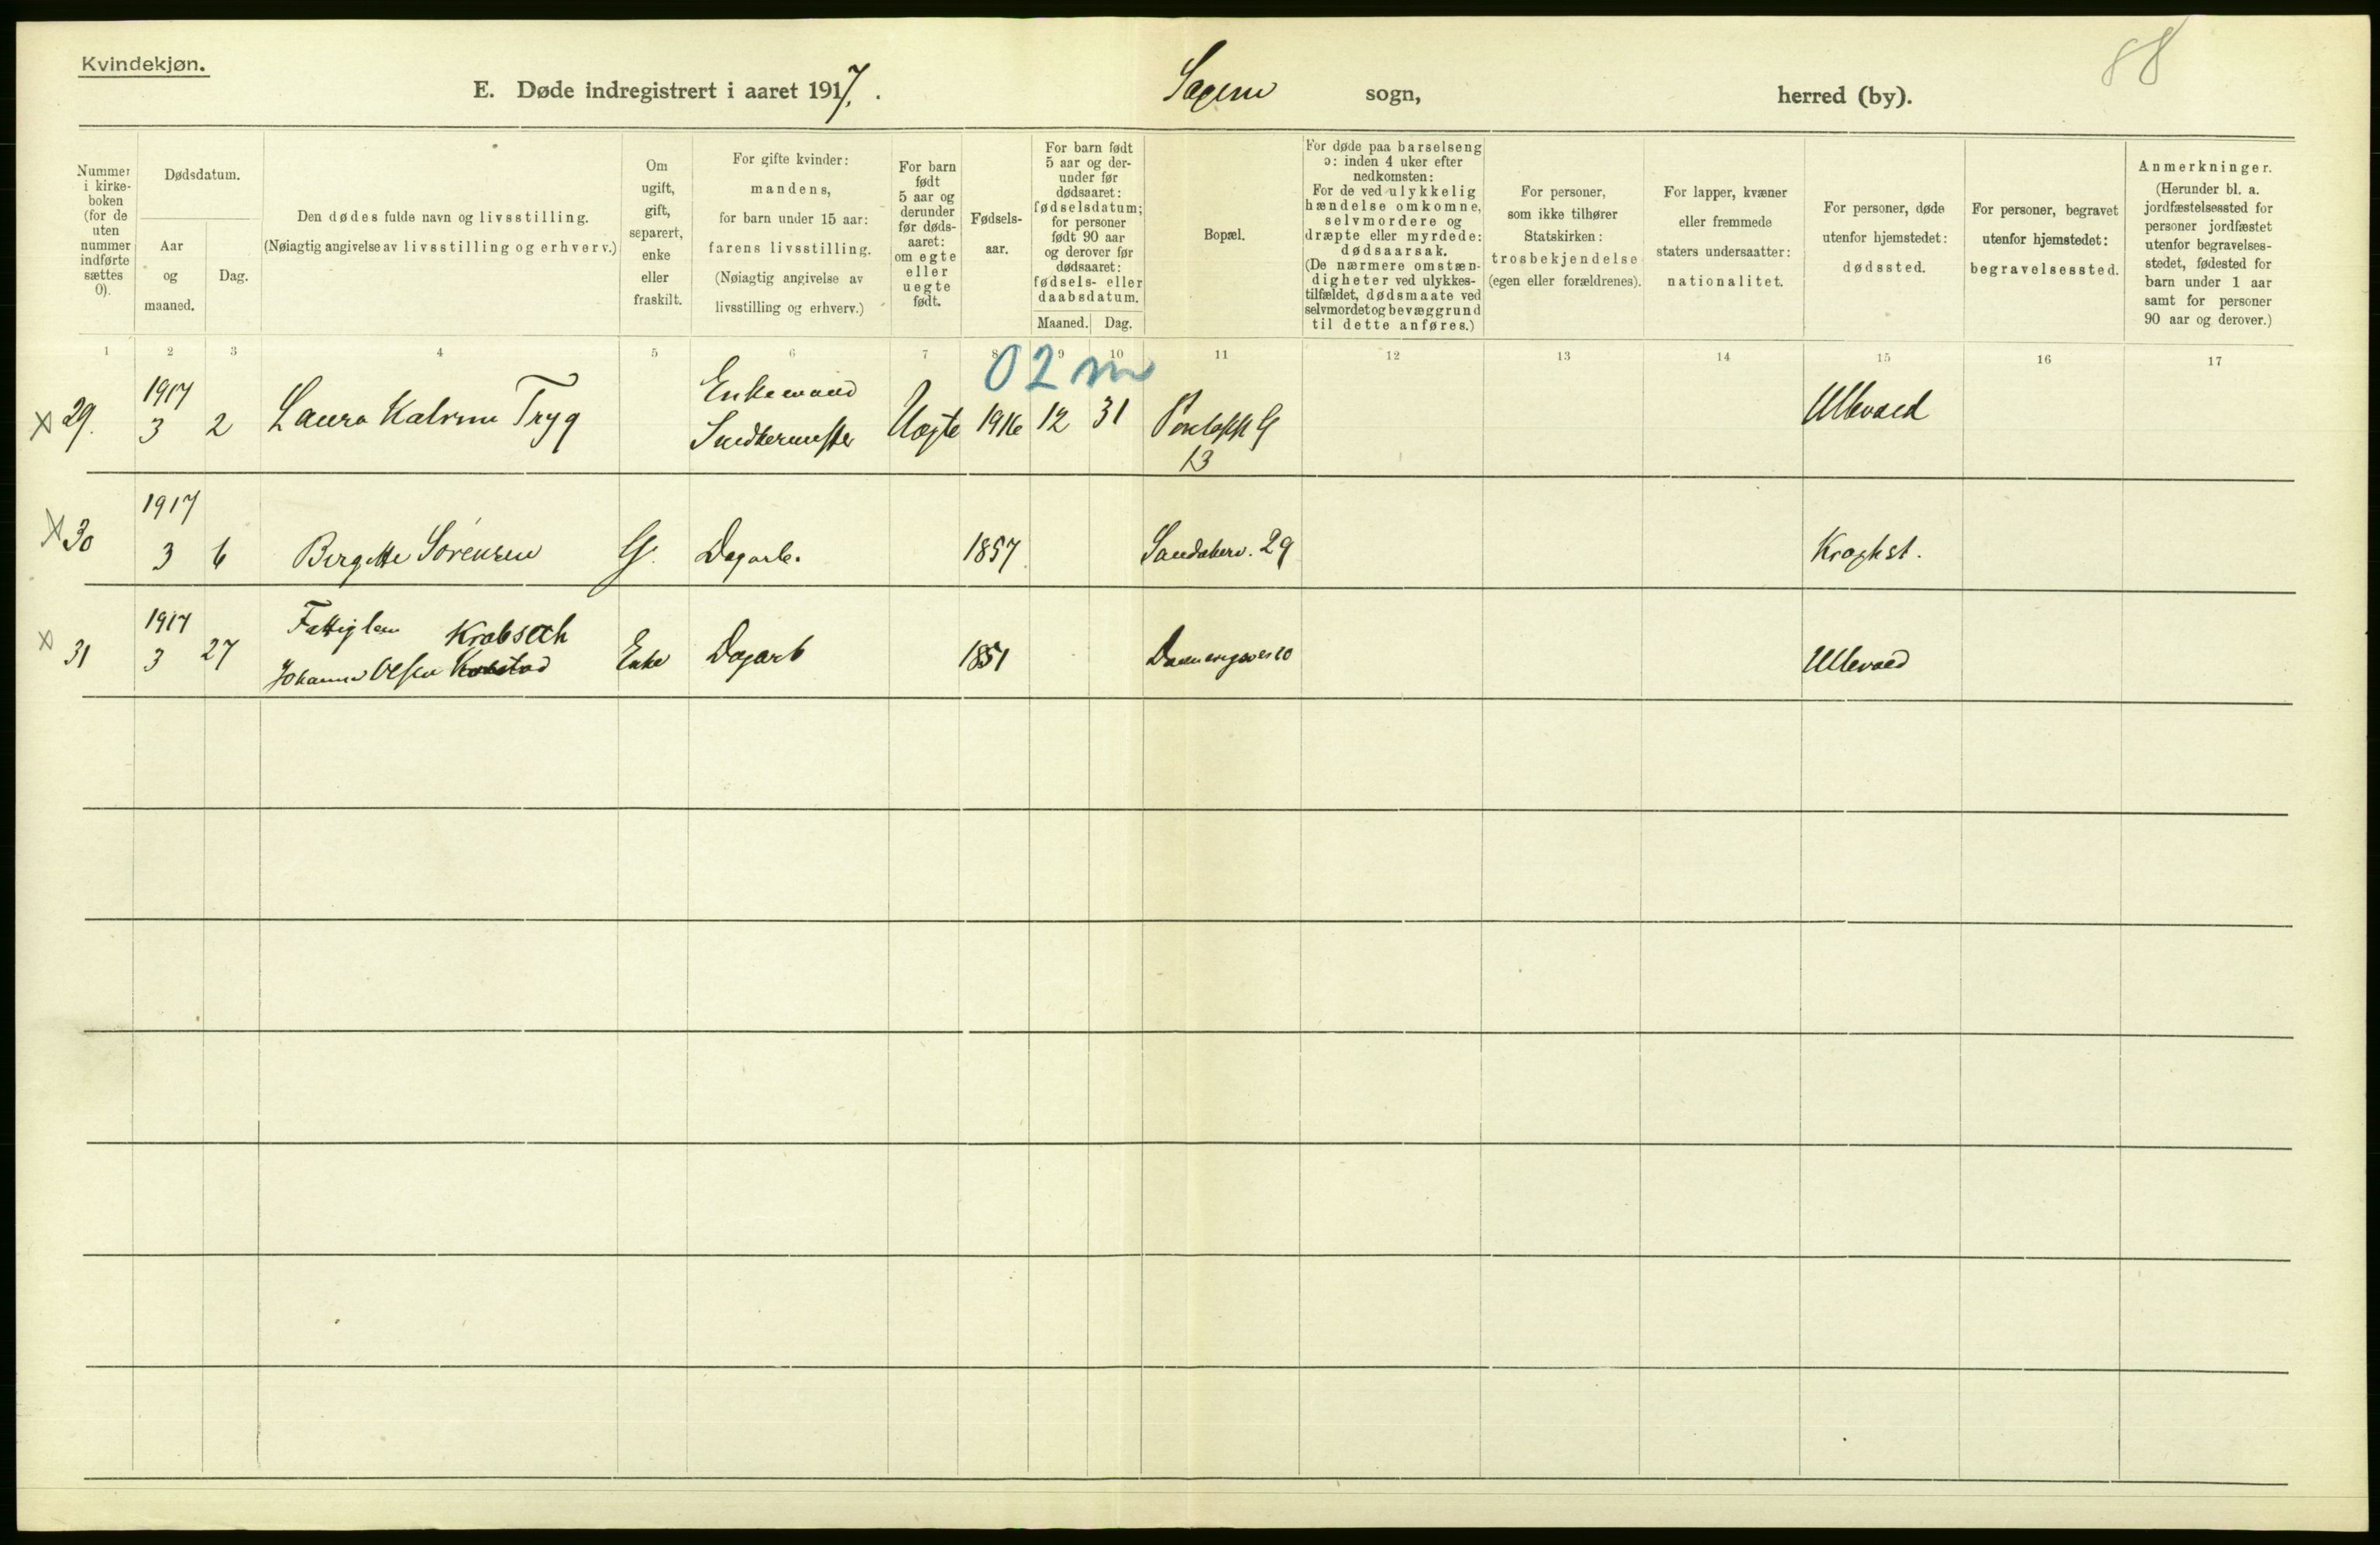 Kvindekjøn.
88
E. Døde indregistrert i aaret 1917. Sagene sogn, herred (by).
Nummer
i kirke-
boken
(for de
uten
nummer
indførte
sættes
0).
Dødsdatum.
Aar
og
maaned.
Dag.
Den dødes fulde navn og livsstilling.
(Nøiagtig angivelse av livsstilling og erhverv.)
Om
ugift,
gift,
separert,
enke
eller
fraskilt.
For gifte kvinder:
mandens,
for barn under 15 aar:
farens livsstilling.
(Nøiagtig angivelse av
livsstilling og erhverv.)
For barn
født
5 aar og
derunder
før døds-
aaret:
om egte
eller
uegte
født.
Fødsels-
aar.
For barn født
5 aar og der-
under før
dødsaaret:
fødselsdatum;
for personer
født 90 aar
og derover før
dødsaaret:
fødsels- eller
daabsdatum.
Maaned. Dag.
Bopæl.
For døde paa barselseng
ɔ: inden 4 uker efter
nedkomsten:
For de ved ulykkelig
hændelse omkomne,
selvmordere og
dræpte eller myrdede:
dødsaarsak.
(De nærmere omstæn-
digheter ved ulykkes-
tilfældet, dødsmaate ved
selvmordet og bevæggrund
til dette anføres.)
For personer,
som ikke tilhører
Statskirken:
trosbekjendelse
(egen eller forældrenes).
For lapper, kvæner
eller fremmede
staters undersaatter:
nationalitet.
For personer, døde
utenfor hjemstedet:
dødssted.
For personer, begravet
utenfor hjemstedet:
begravelsessted.
Anmerkninger.
(Herunder bl. a.
jordfæstelsessted for
personer jordfæstet
utenfor begravelses-
stedet, fødested for
barn under 1 aar
samt for personer
90 aar og derover.)
1 2 3 4 5 6 7 8 9 10 11 12 13 14 15 16 17
02 m
1917 Enkemand
x 29. 3 2 Laura Katrine Tryg Uegte 1916 12 31 Ullevaal
13
1917
x 30 3 6 Birgitte Sørensen G. Dagarb. 1857 Sandakerv. 29 Kroghst.
1917 Fattiglem Krabseth
x 31 3 27 Johanne Olsen Enke Dagarb 1851 Ullevaal